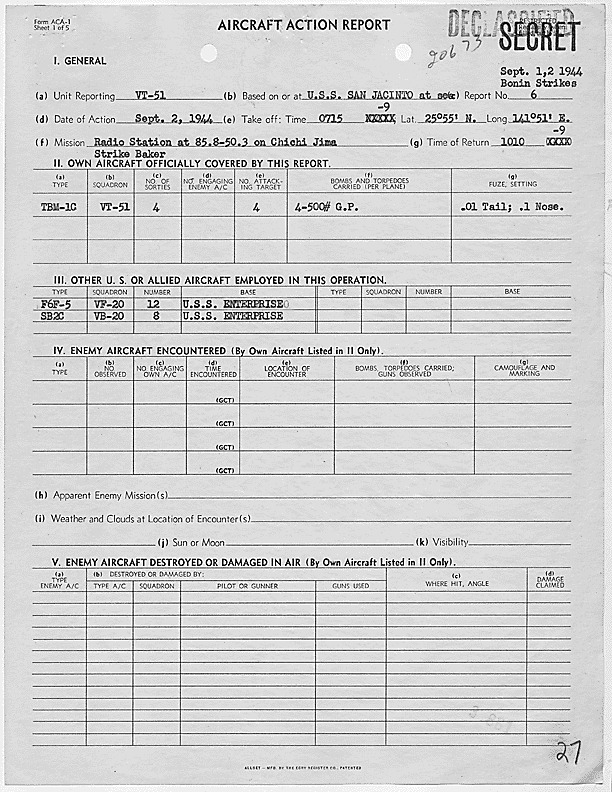 Form ACA-1
Sheet 1 of 5
AIRCRAFT ACTION REPORT
DECLASSIFIED
RESTRICTED
SECRET
I. GENERAL
Sept. 1,2 1944
Bonin Strikes
(a) Unit Reporting VT-51 (b) Based on or at U.S.S. SAN JACINTO at sea (c) Report No. 6
-9
(d) Date of Action Sept. 2, 1944 (e) Take off: Time 0715 XXXXX Lat. 25°55' N. Long. 141°51' E.
-9
(f) Mission Radio Station at 85.8-50.3 on Chichi Jima (g) Time of Return 1010 XXXX
Strike Baker
II. OWN AIRCRAFT OFFICIALLY COVERED BY THIS REPORT.
(a) TYPE (b) SQUADRON (c) NO. OF SORTIES (d) NO. ENGAGING ENEMY A/C (e) NO. ATTACKING TARGET (f) BOMBS AND TORPEDOES CARRIED (PER PLANE) (g) FUZE, SETTING
TBM-1C VT-51 4 4 4-500# G.P. .01 Tail; .1 Nose.
III. OTHER U. S. OR ALLIED AIRCRAFT EMPLOYED IN THIS OPERATION.
TYPE SQUADRON NUMBER BASE TYPE SQUADRON NUMBER BASE
F6F-5 VF-20 12 U.S.S. ENTERPRISE
SB2C VB-20 8 U.S.S. ENTERPRISE
IV. ENEMY AIRCRAFT ENCOUNTERED (By Own Aircraft Listed in II Only).
(a) TYPE (b) NO. OBSERVED (c) NO ENGAGING OWN A/C (d) TIME ENCOUNTERED (e) LOCATION OF ENCOUNTER (f) BOMBS, TORPEDOES CARRIED; GUNS OBSERVED (g) CAMOUFLAGE AND MARKING
(GCT)
(GCT)
(GCT)
(GCT)
(h) Apparent Enemy Mission(s)
(i) Weather and Clouds at Location of Encounter(s)
(j) Sun or Moon (k) Visibility
V. ENEMY AIRCRAFT DESTROYED OR DAMAGED IN AIR (By Own Aircraft Listed in II Only).
(a) TYPE ENEMY A/C (b) DESTROYED OR DAMAGED BY: (c) WHERE HIT, ANGLE (d) DAMAGE CLAIMED
TYPE A/C SQUADRON PILOT OR GUNNER GUNS USED
27